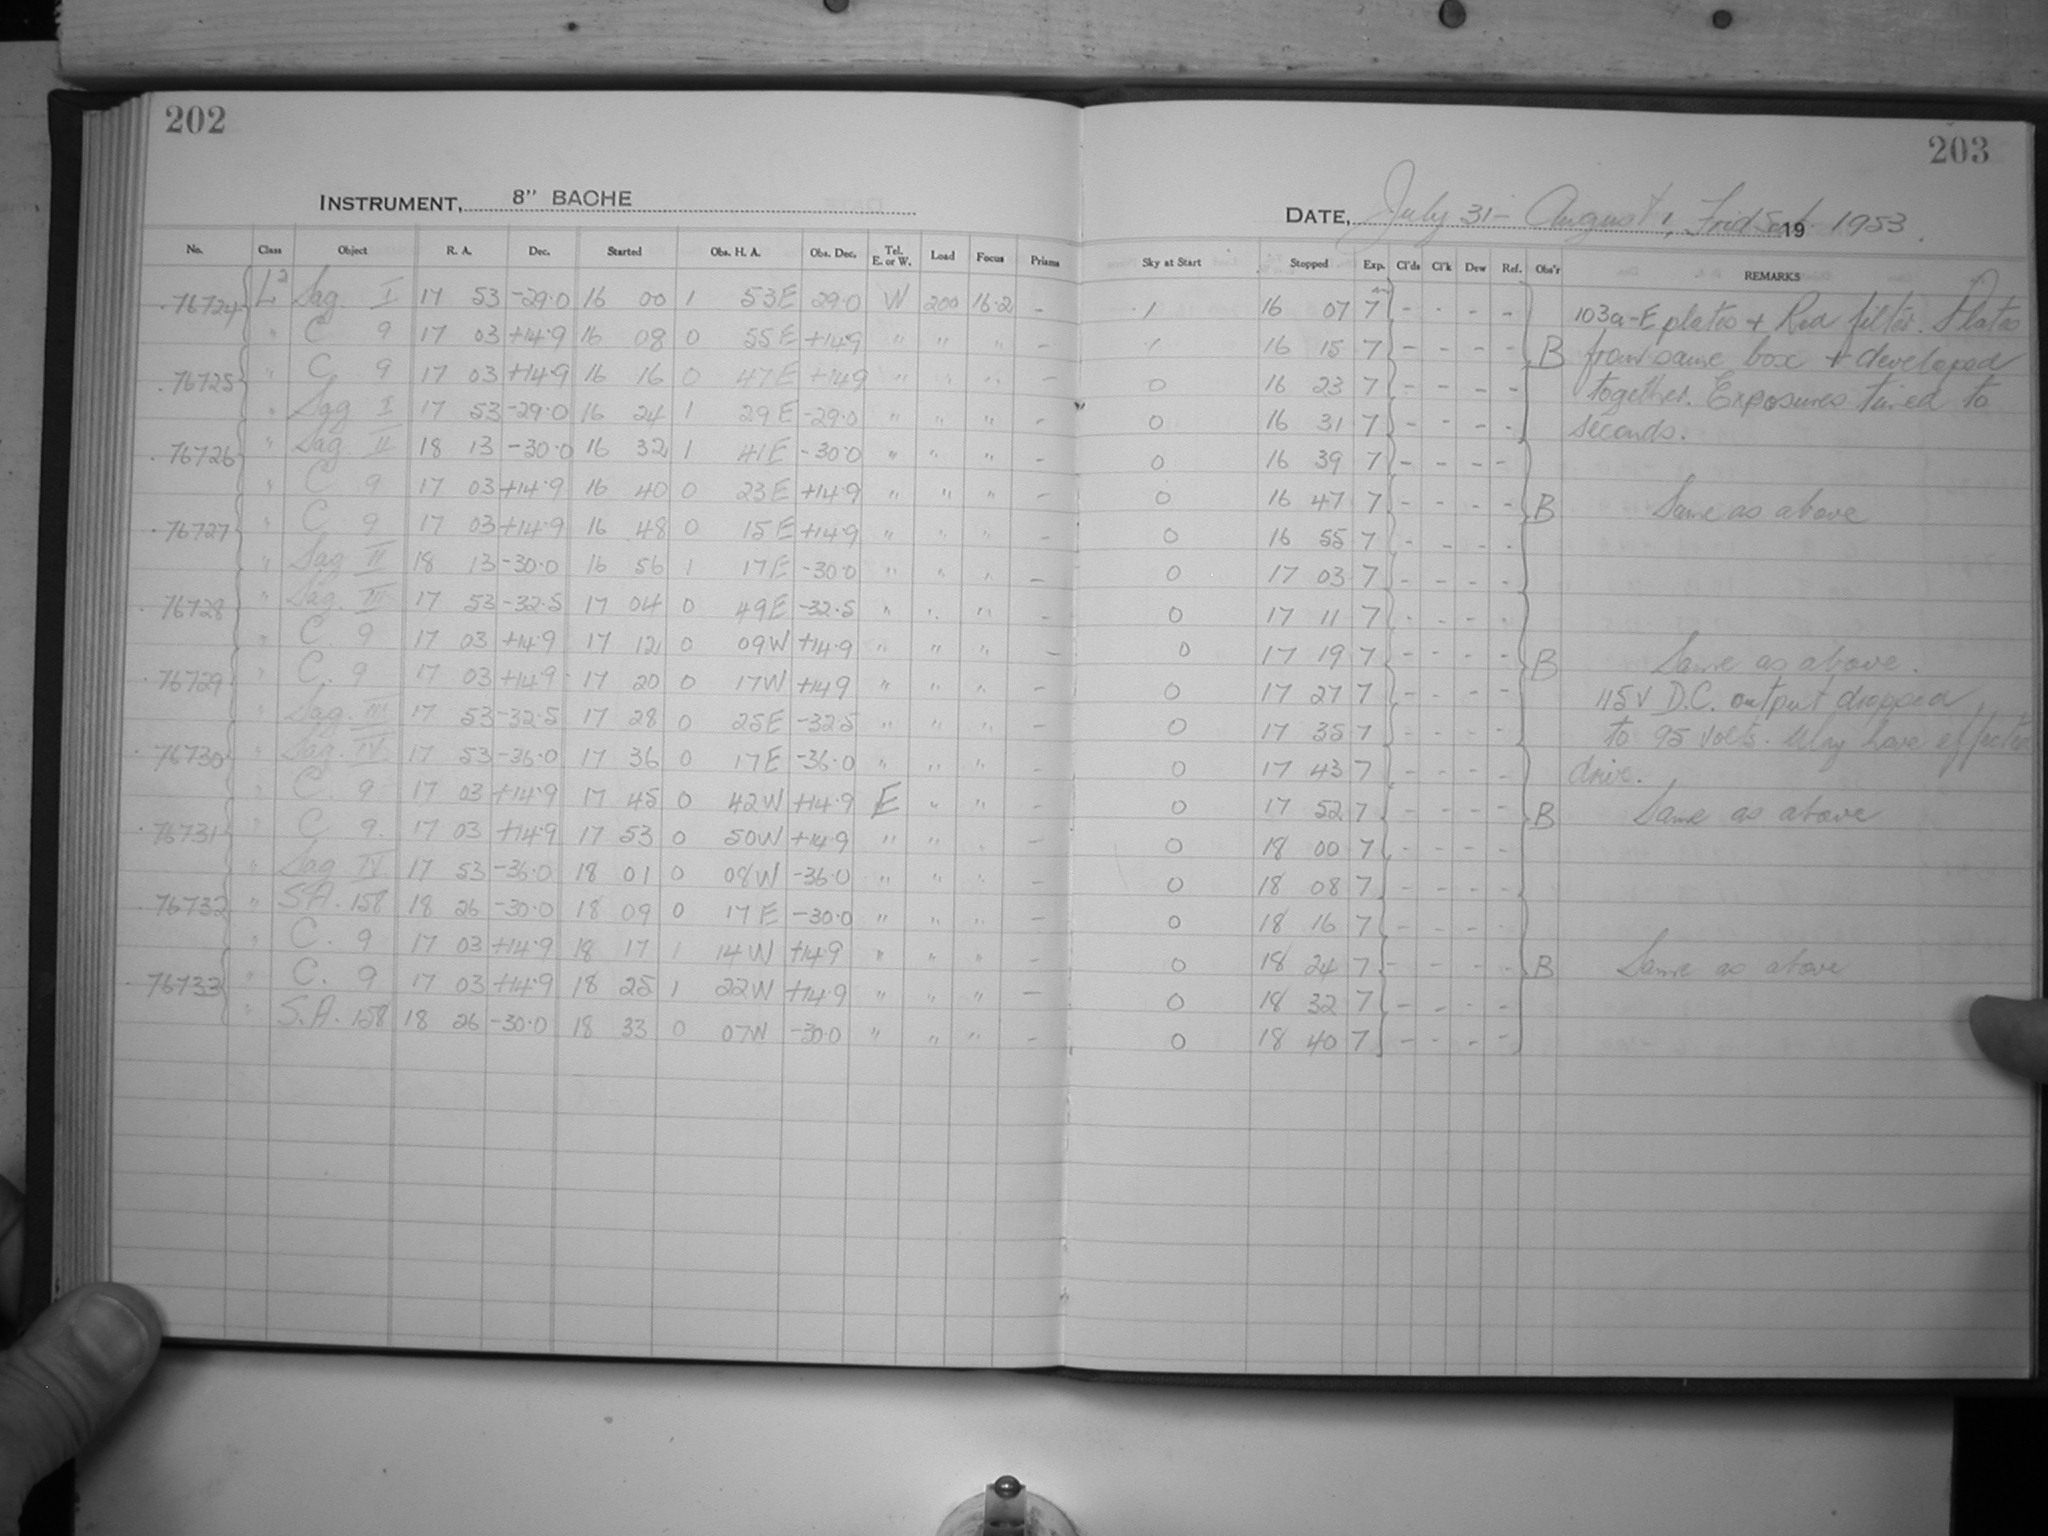 202
203
INSTRUMENT, 8" BACHE
DATE, July 31 - August 1, Frid Sat. 19 1953.
No. Class Object R. A. Dec. Started Obs. H. A. Obs. Dec. Tel. E. or W. Load Focus Prisms Sky at Start Stopped Exp. Cl'ds Cl'k Dew Ref. Obs'r REMARKS
76724 L2 Sag I 17 53 -29.0 16 00 1 53E 29.0 W 200 16.2 - 1 16 07 7 - - - - 103a-E plates + Red filter. Plates
" C 9 17 03 +14.9 16 08 0 55E +14.9 " " " - 1 16 15 7 - - - - B from same box + developed
76725 " C. 9 17 03 +14.9 16 16 0 47E +14.9 " " " - 0 16 23 7 - - - - together. Exposures timed to
" Sag I 17 53 -29.0 16 24 1 29E -29.0 " " " - 0 16 31 7 - - - - seconds.
76726 " Sag. II 18 13 -30.0 16 32 1 41E -30.0 " " " - 0 16 39 7 - - - -
" C 9 17 03 +14.9 16 40 0 23E +14.9 " " " - 0 16 47 7 - - - - B Same as above
76727 " C 9 17 03 +14.9 16 48 0 15E +14.9 " " " - 0 16 55 7 - - - -
" Sag II 18 13 -30.0 16 56 1 17E -30.0 " " " - 0 17 03 7 - - - -
76728 " Sag. III 17 53 -32.5 17 04 0 49E -32.5 " " " - 0 17 11 7 - - - -
" C. 9 17 03 +14.9 17 12 0 09W +14.9 " " " - 0 17 19 7 - - - - B Same as above.
76729 " C. 9 17 03 +14.9 17 20 0 17W +14.9 " " " - 0 17 27 7 - - - - 115V D.C. output dropped
" Sag. III 17 53 -32.5 17 28 0 25E -32.5 " " " - 0 17 35 7 - - - - to 95 volts. May have
76730 " Sag. IV 17 53 -36.0 17 36 0 17E -36.0 " " " - 0 17 43 7 - - - - drive.
" C. 9 17 03 +14.9 17 45 0 42W +14.9 E " " - 0 17 52 7 - - - - B Same as above
76731 " C 9. 17 03 +14.9 17 53 0 50W +14.9 " " " - 0 18 00 7 - - - -
" Sag IV 17 53 -36.0 18 01 0 08W -36.0 " " " - 0 18 08 7 - - - -
76732 " S.A. 158 18 26 -30.0 18 09 0 17E -30.0 " " " - 0 18 16 7 - - - -
" C. 9 17 03 +14.9 18 17 1 14W +14.9 " " " - 0 18 24 7 - - - - B Same as above
76733 " C. 9 17 03 +14.9 18 25 1 22W +14.9 " " " - 0 18 32 7 - - - -
" S.A. 158 18 26 -30.0 18 33 0 07W -30.0 " " " - 0 18 40 7 - - - -